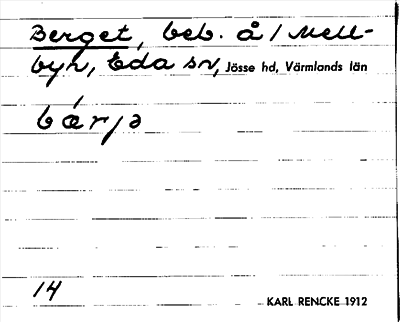 Berget, beb. å / Mell-
byn, Eda sn, Jösse hd, Värmlands län
bǽrjə
14 KARL RENCKE 1912